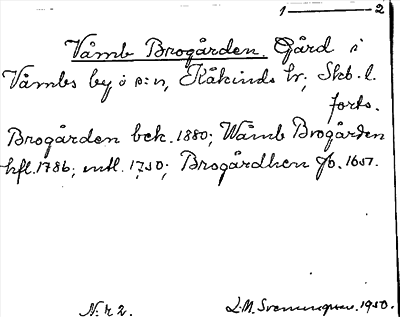 1 — 2
Våmb Brogården. Gård i
Våmbs by o s:n, Kåkinds hr; Skb. l.
forts.
Brogården bek. 1880; Wåmb Brogården
hfl. 1786; mtl. 1750; Brogårdhen jb. 1651.
N:r 2.
L.M. Svenungsson. 1950.